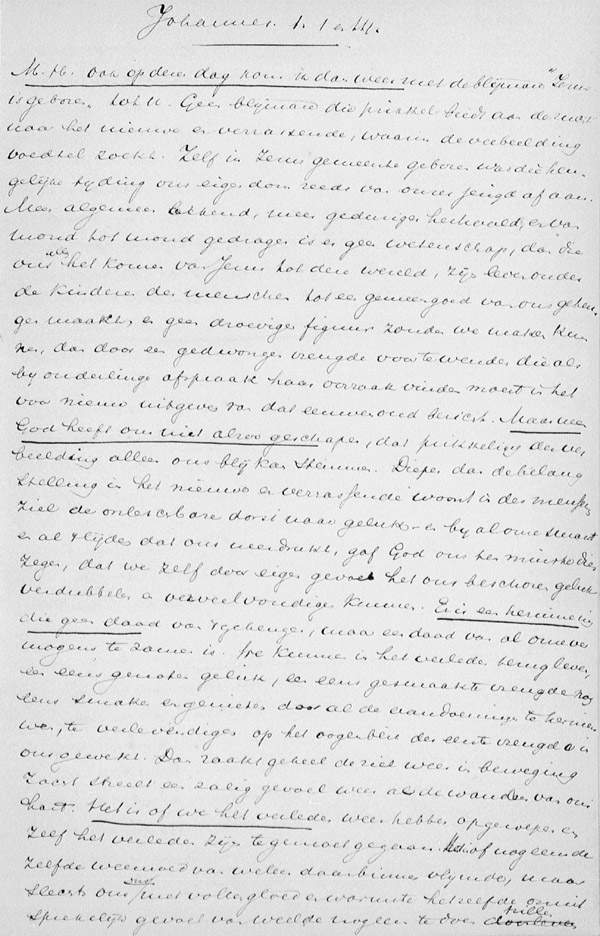 Johannes 1. 1 en 14.
M. H. ook op dezen dag kom ik dan weer met de blijmare "Jezus
is geboren" tot U. Geen blijmare die prikkel biedt aan de zucht
naar het nieuwe en verrassende, waarin de verbeelding
voedsel zoekt. Zelf in Jezus gemeente geboren was die heu-
gelijke tijding ons eigendom reeds van onzer jeugd af aan.
Meer algemeen bekend, meer gedurige herhaald, en van
mond tot mond gedragen is er geen wetenschap, dan die
ons van het komen van Jezus tot deze wereld, zijn leven onder
de kinderen der menschen tot een gemeengoed van ons geheu-
gen maakt, en geen droeviger figuur zouden we maken kun-
nen, dan door een gedwongen vreugde voor te wenden die als
bij onderlinge afspraak haar oorzaak vinden moest in het
voor nieuw uitgeven van dat eeuwenoud bericht. Maar neen
God heeft ons niet alzoo geschapen, dat prikkeling der ver-
beelding alleen ons blij kan stemmen. Dieper dan de belang
stelling in het nieuwe en verrassende woont in des menschen
ziel de onleschbare dorst naar geluk en bij al onze smart
en al 't lijden dat ons neerdrukt, gaf God ons ten minste dien
zegen, dat we zelf door eigen gevoel het ons beschoren geluk
verdubbelen en verveelvoudigen kunnen. Er is een herinnering
die geen daad van 't geheugen, maar een daad van al onze ver
mogens te zamen is. We kunnen in het verleden terugleven,
een eens genoten geluk, een eens gesmaakte vreugde nog
eens smaken en genieten door al de aandoeningen te hernieu
wen, te verlevendigen op het oogenblik der eerste vreugd in
ons gewekt. Dan raakt geheel de ziel weer in beweging
Zacht streelt een zalig gevoel weer als de wanden van ons
hart. Het is of we het verleden weer hebben opgeroepen en
zelf het verleden zijn tegemoet gegaan. Het is of nog eens de
zelfde weemoed van weleer daar binnen vlijmde, maar
slechts om met vollen gloed en warmte hetzelfde onuit
sprekelijk gevoel van weelde nog eens te doen trillen